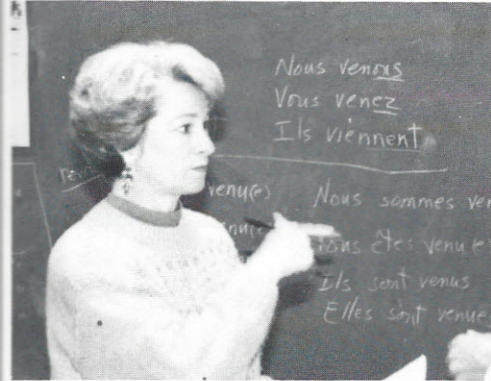 Nous venons
Vous venez
Ils viennent
venu(e) Nous sommes
Vous êtes venu(e)
Ils sont venus
Elles sont venues